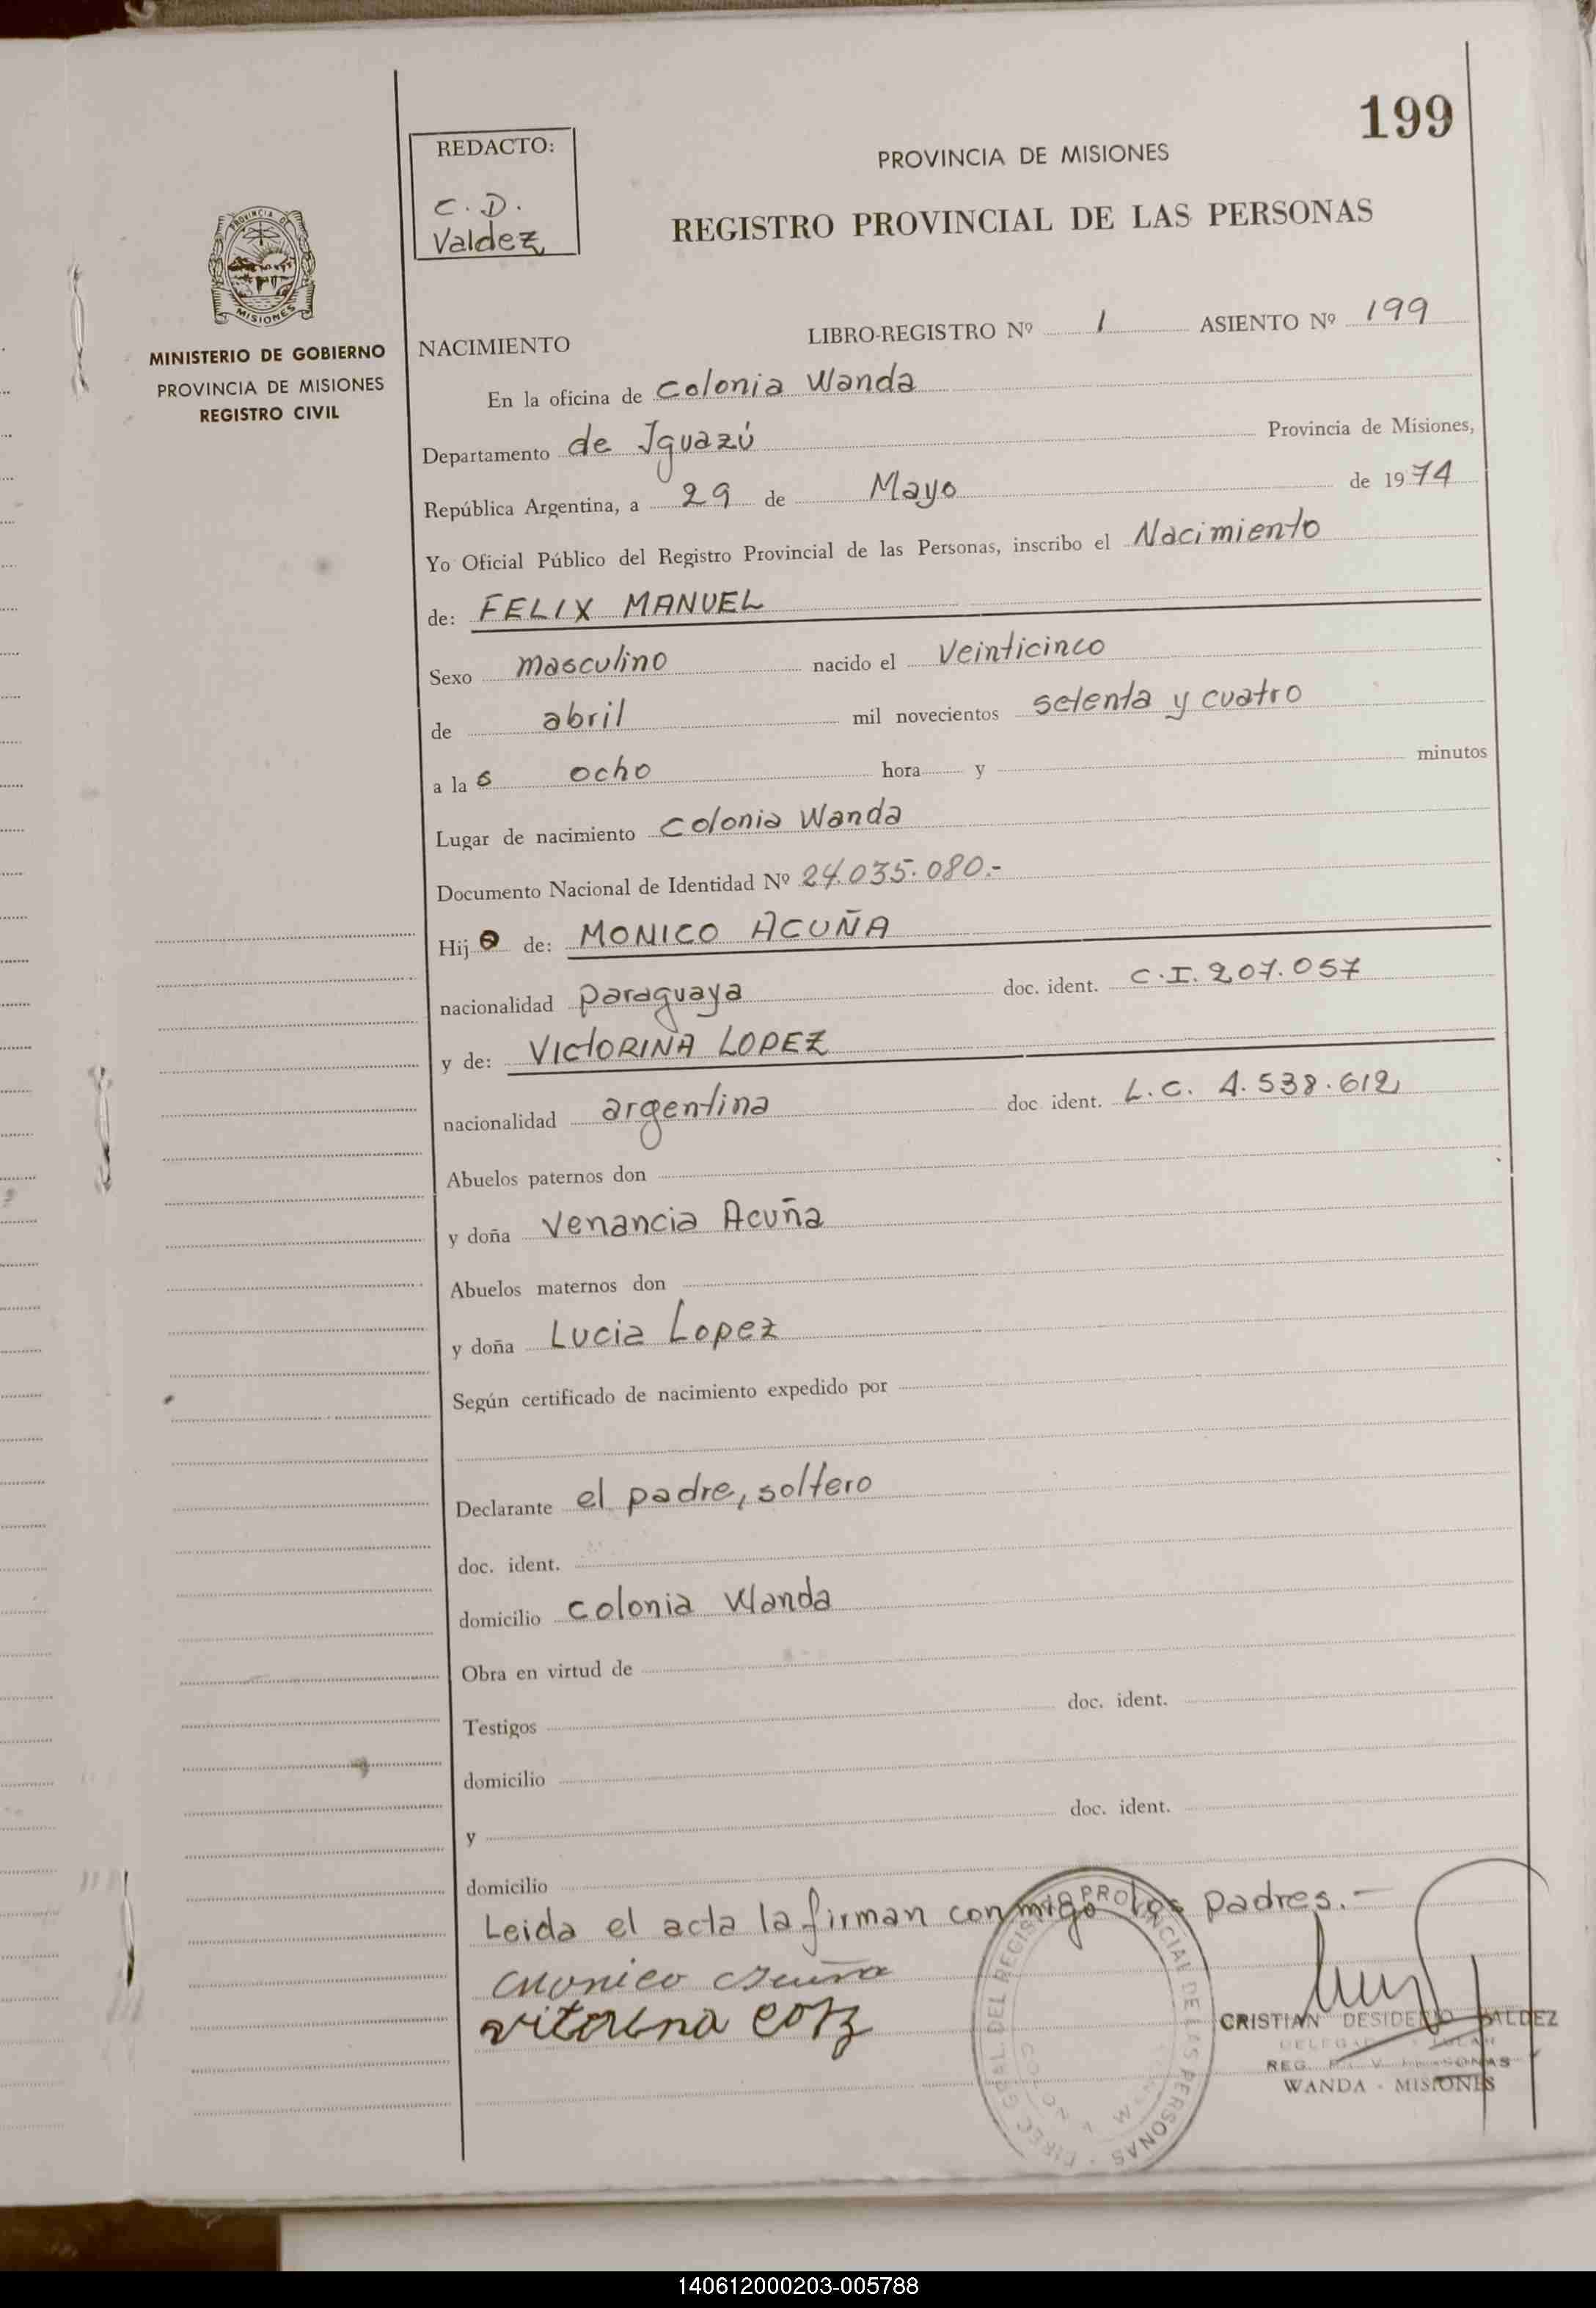 199
REDACTO:
C. D.
Valdez
PROVINCIA DE MISIONES
REGISTRO PROVINCIAL DE LAS PERSONAS
PROVINCIA DE
MISIONES
MINISTERIO DE GOBIERNO
PROVINCIA DE MISIONES
REGISTRO CIVIL
NACIMIENTO LIBRO-REGISTRO Nº 1 ASIENTO Nº 199
En la oficina de Colonia Wanda
Departamento de Iguazú Provincia de Misiones,
República Argentina, a 29 de Mayo de 1974
Yo Oficial Público del Registro Provincial de las Personas, inscribo el Nacimiento
de: FELIX MANUEL
Sexo masculino nacido el veinticinco
de abril mil novecientos setenta y cuatro
a la s ocho hora y minutos
Lugar de nacimiento Colonia Wanda
Documento Nacional de Identidad Nº 24.035.080.-
Hijo de: MONICO ACUÑA
nacionalidad paraguaya doc. ident. C.I. 207.057
y de: VICTORINA LOPEZ
nacionalidad argentina doc ident. L.C. 4.538.612
Abuelos paternos don
y doña Venancia Acuña
Abuelos maternos don
y doña Lucia Lopez
Según certificado de nacimiento expedido por
Declarante el padre, soltero
doc. ident.
domicilio Colonia Wanda
Obra en virtud de
Testigos doc. ident.
domicilio
y doc. ident.
domicilio
Leida el acta la firman conmigo los padres.-
Monico Acuña
DIREC GRAL DEL REGISTRO PROVINCIAL DE LAS PERSONAS
CRISTIAN DESIDERIO VALDEZ
WANDA - MISIONES
140612000203-005788